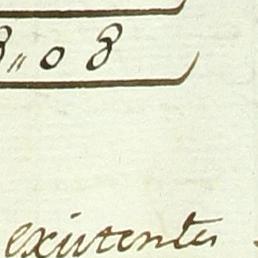 8 " 0 8
existentes